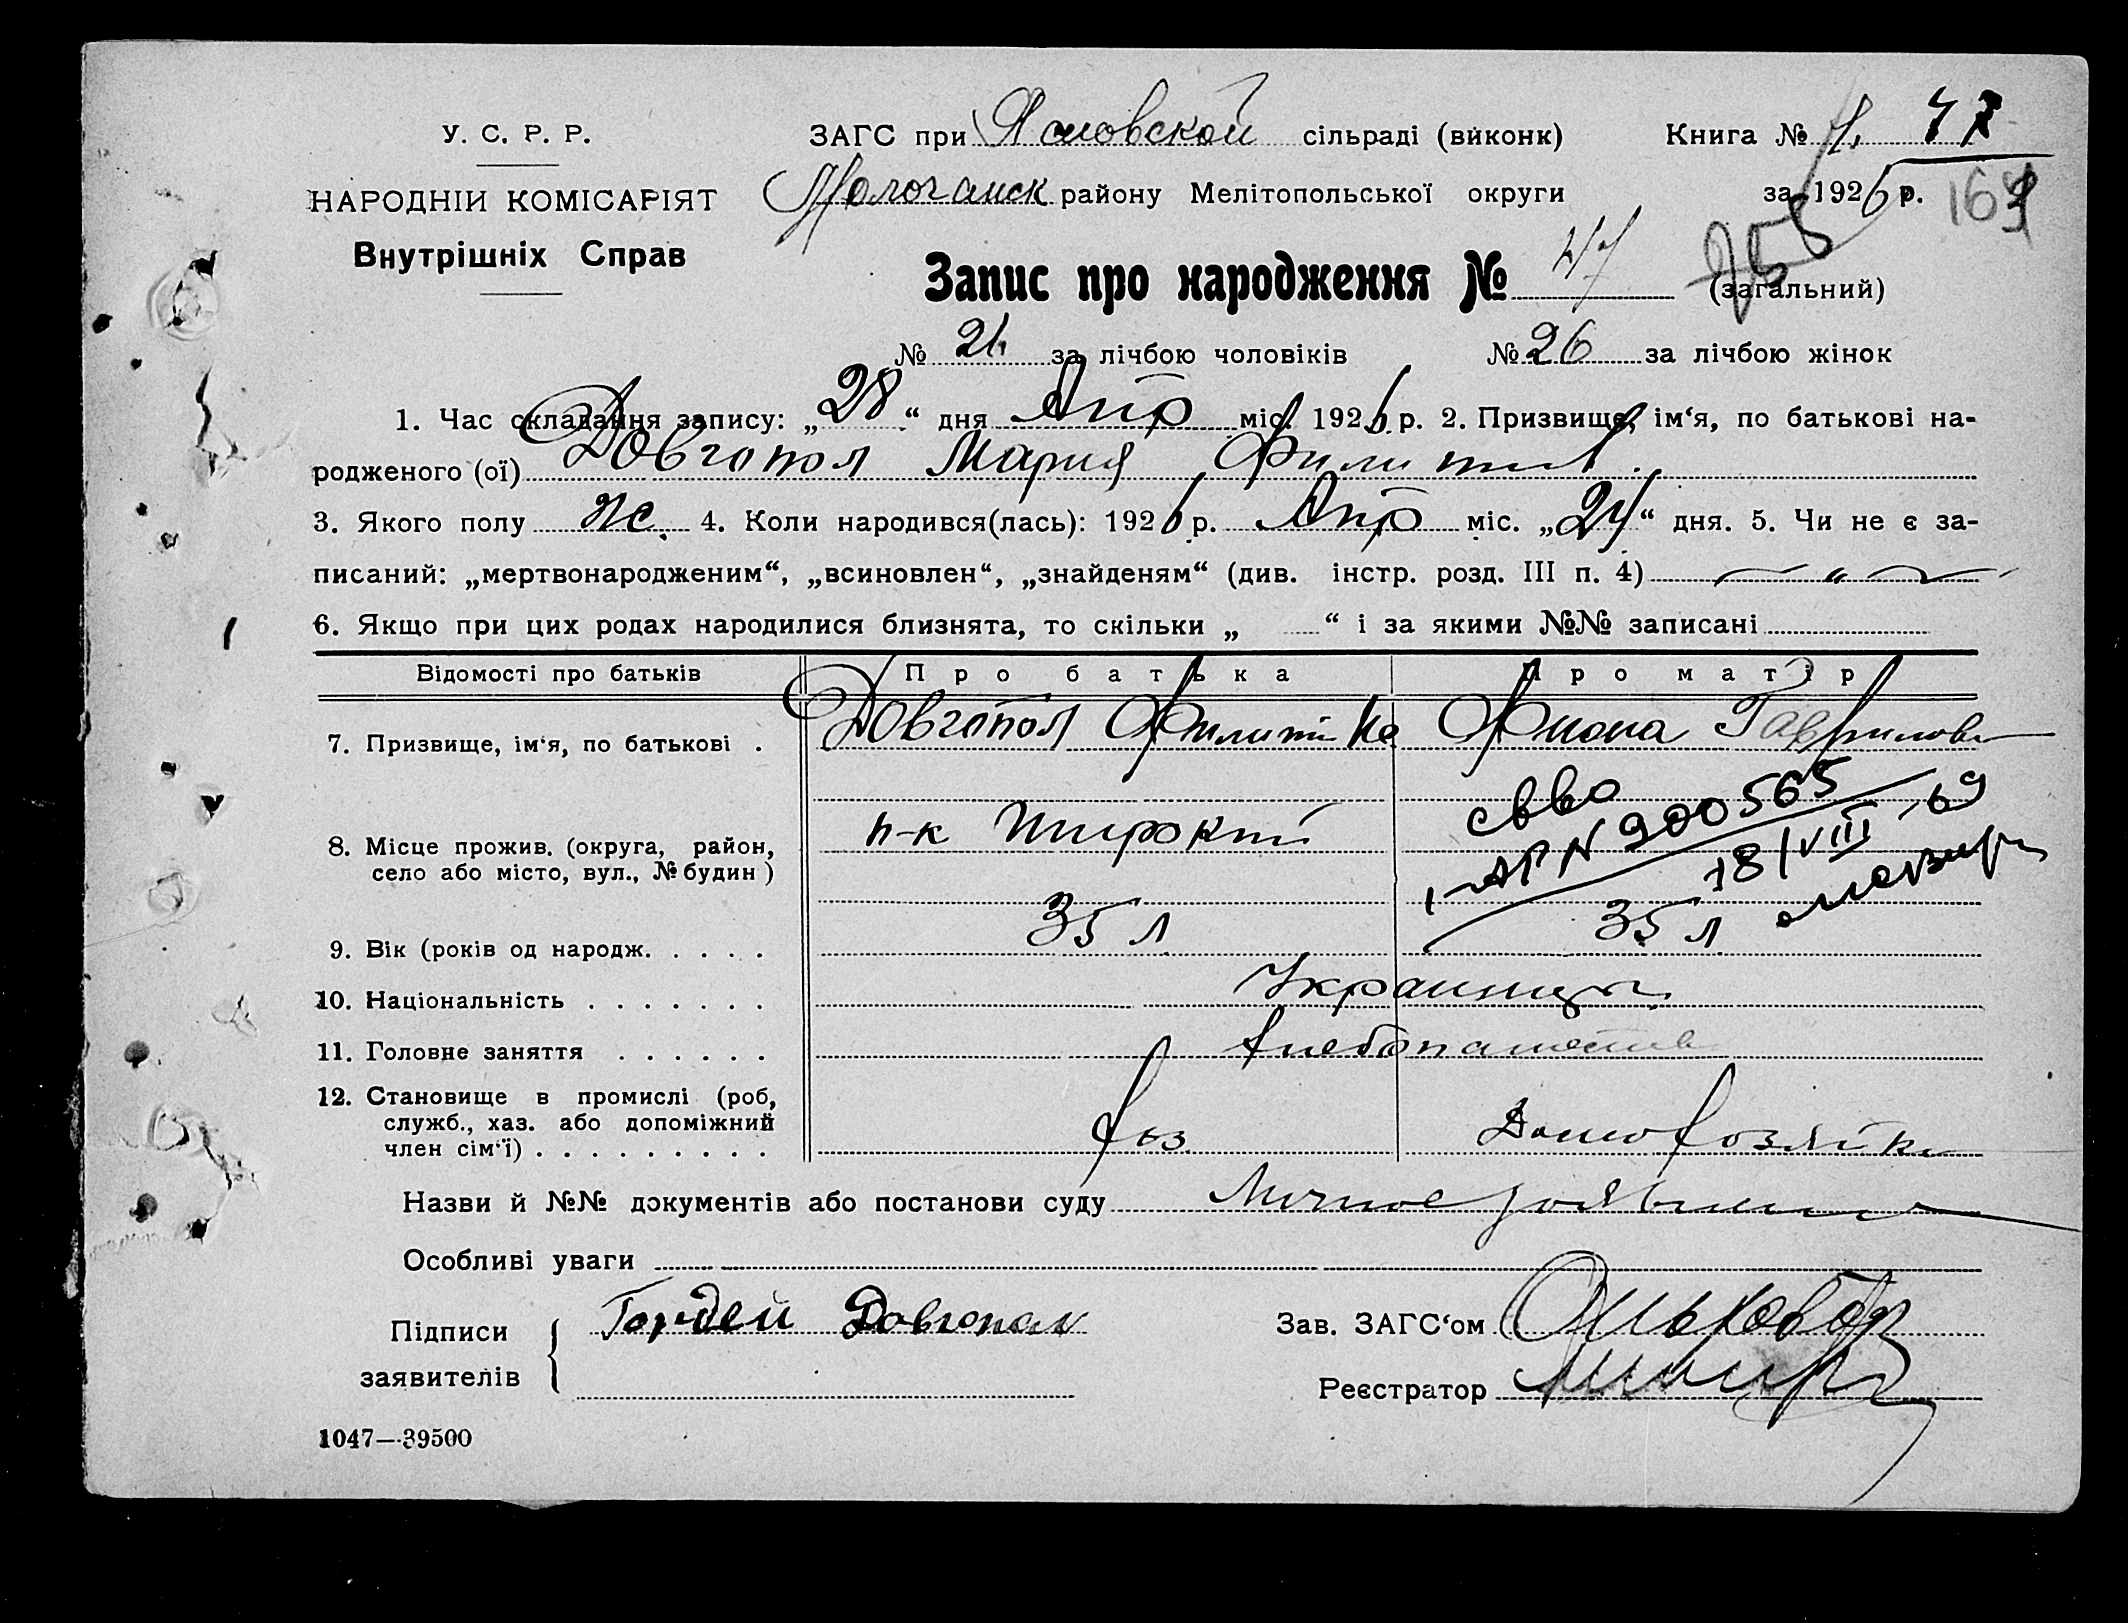 У. С. Р. Р.
НАРОДНІЙ КОМІСАРІЯТ
Внутрішніх Справ
ЗАГС при Ясновской сільраді (виконк)
Молочанск району Мелітопольської округи
Книга № 47
за 1926 р.
Запис про народження № 47 (загальний)
№ 21 за лічбою чоловіків № 26 за лічбою жінок
1. Час складання запису: „28“ дня Апр міс. 1926 р. 2. Призвище, ім‘я, по батькові на-
родженого (ої) Довгопол Мария Филип
3. Якого полу ж. 4. Коли народився(лась): 1926 р. Апр міс. „24“ дня. 5. Чи не є за-
писаний: „мертвонародженим“, „всиновлен“, „знайденям“ (див. інстр. розд. III п. 4) — „ —
6. Якщо при цих родах народилися близнята, то скільки „ “ і за якими №№ записані
Відомості про батьків Про батька Про матір
7. Призвище, ім‘я, по батькові . Довгопол Филип Гаврилов
8. Місце прожив. (округа, район,
село або місто, вул., № будин) п-к Широкий
св во
I-АР N 900565
18/VIII 69
9. Вік (років од народж. . . . . 35 л 35 л
10. Національність . . . . . . . Украинцы
11. Головне заняття . . . . . . Хлебопашество
12. Становище в промислі (роб,
служб., хаз. або допоміжний
член сім‘ї) . . . . . . . . . хоз. Домохозяйка
Назви й №№ документів або постанови суду Личное заявление
Особливі уваги
Підписи
заявителів
Гордей Довгопол
Зав. ЗАГС‘ом
Реєстратор
1047—39500